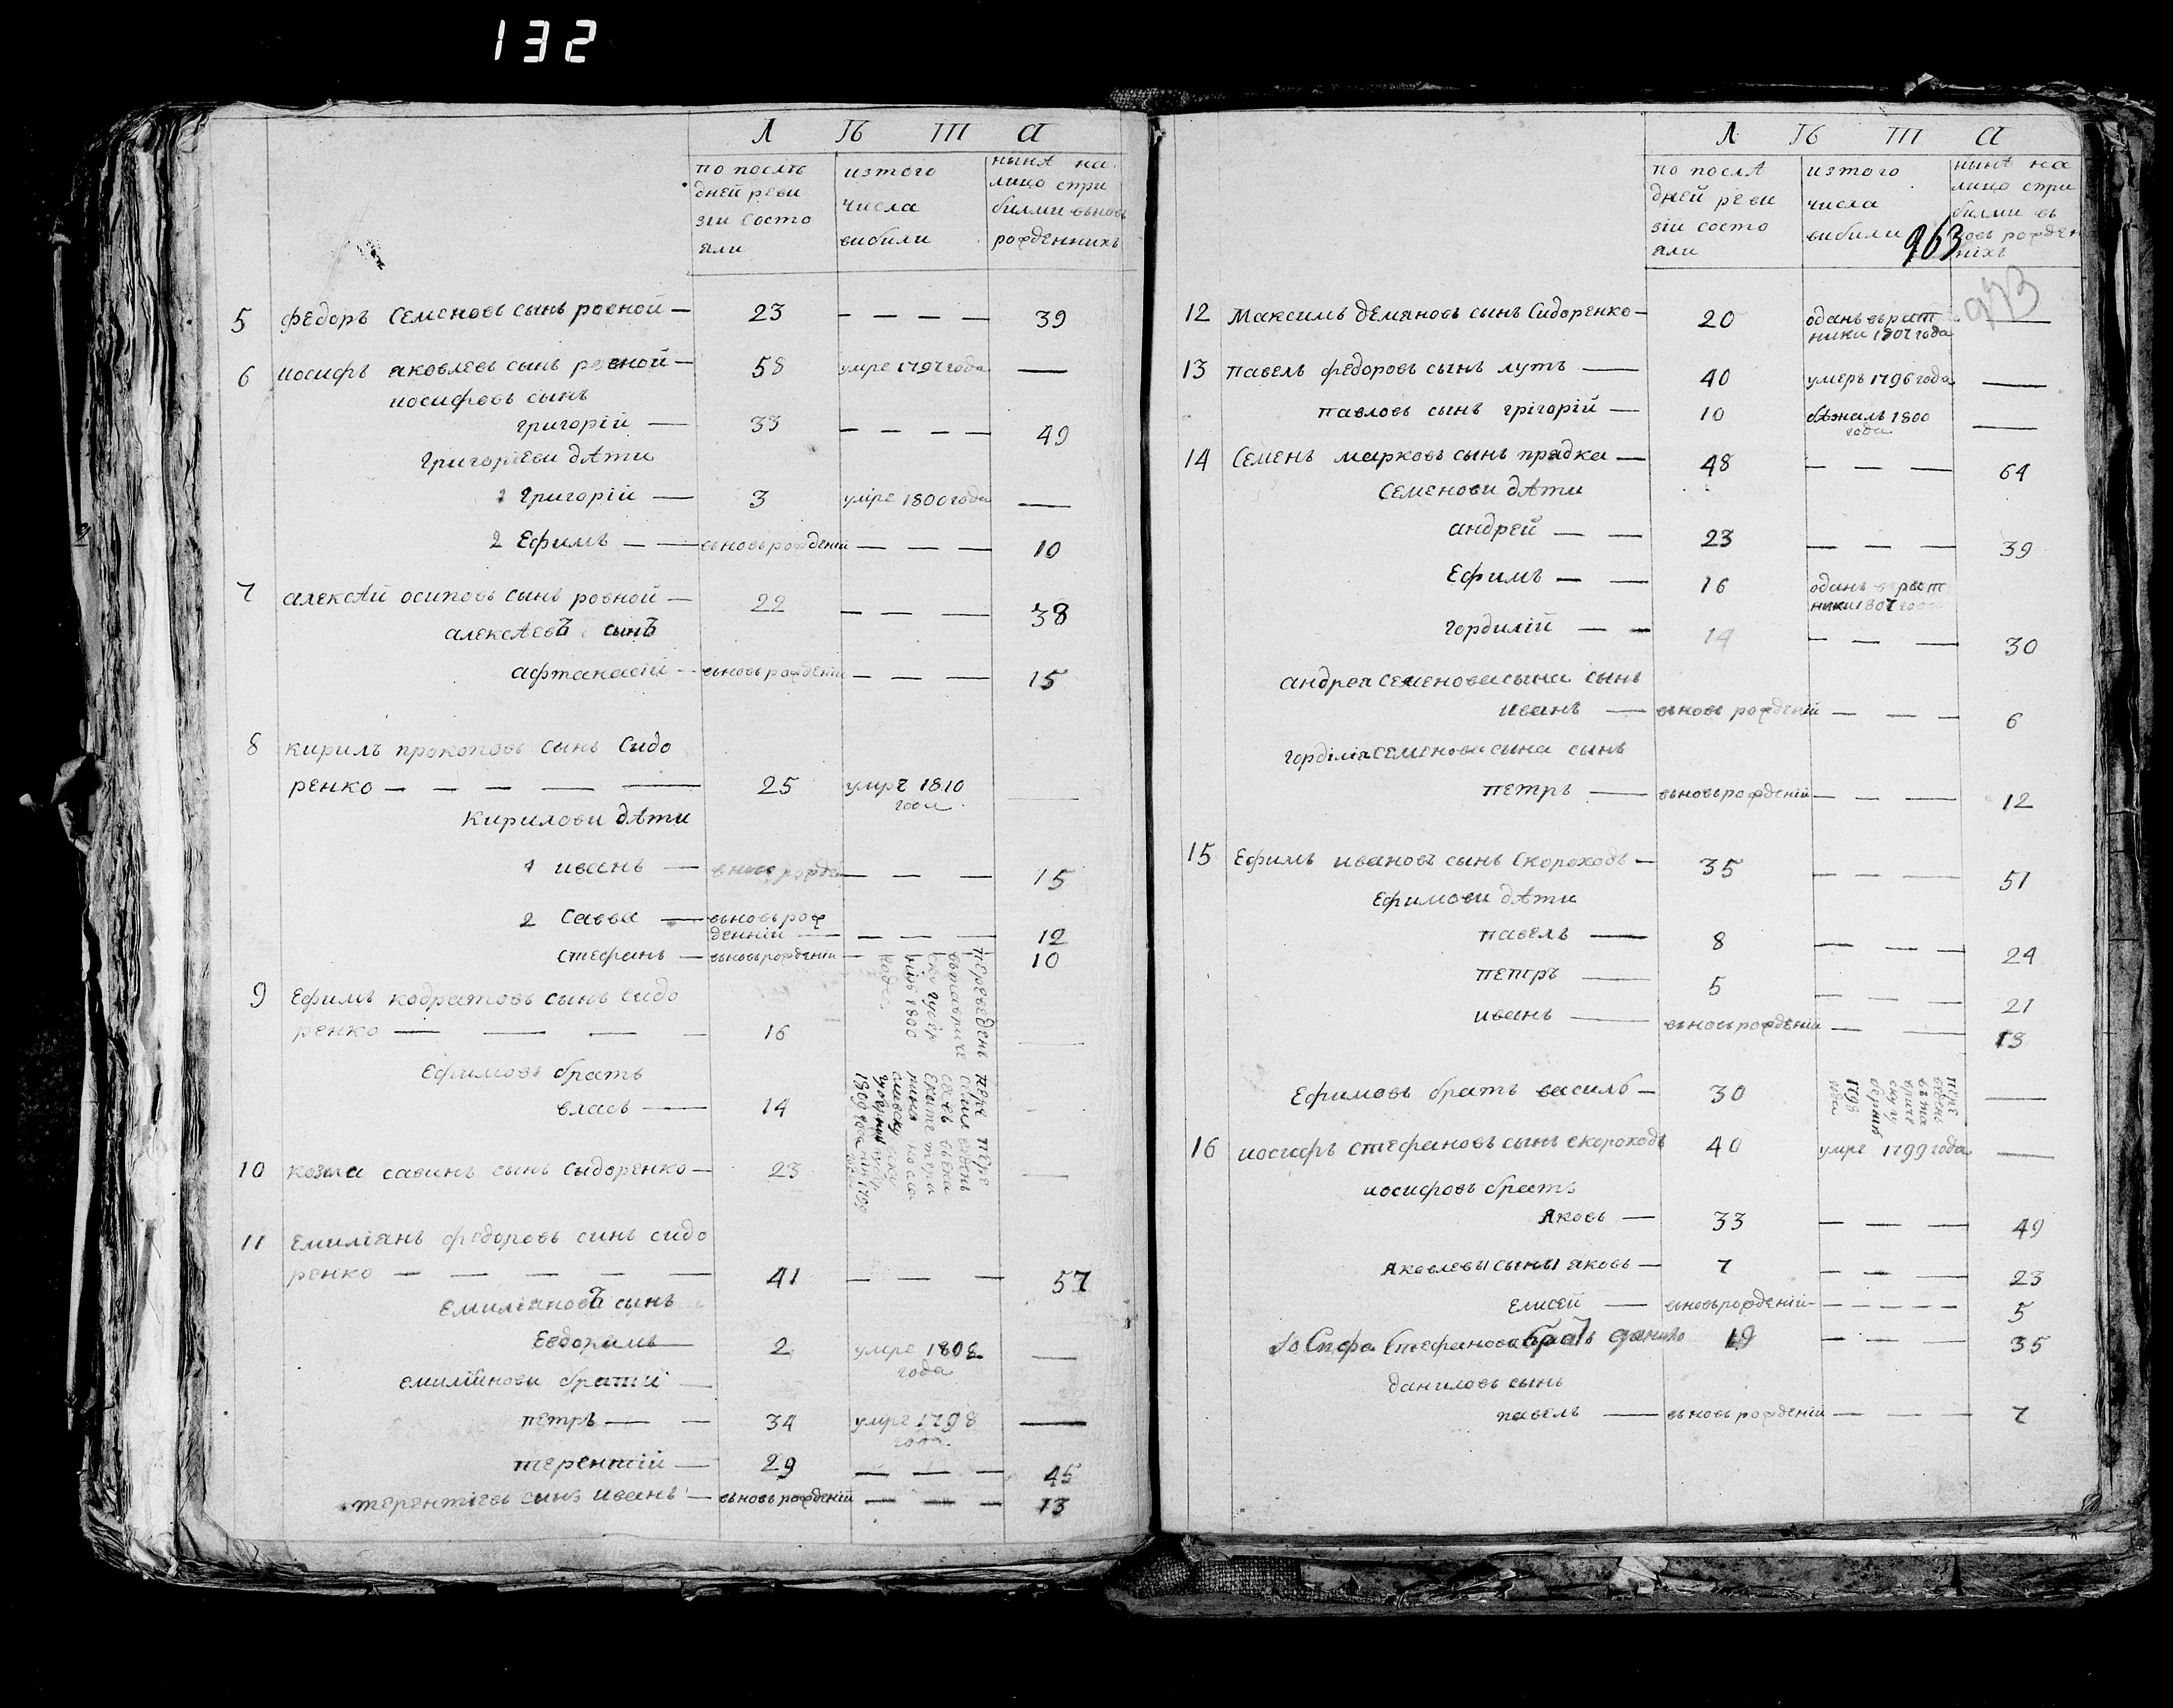 132
Л Ѣ Т А
по послѣ
дней реви
зіи состо
яли
изтого
числа
вибили
нынѣ на
лицо спри
билми вьновь
рожденнихъ
5 Федоръ Семеновъ сынъ ровной — 23 — — — — 39
6 иосифъ яковлевъ сынъ ровной — 58 умре 1797 года —
иосифовъ сынъ
григорій — 33 — — — — 49
Григориеви дѣти
1 Григорій — 3 умре 1800 года —
2 Ефимъ — — вьновьрожденій — — — 10
7 алексѣй осиповъ сынъ ровной — 22 — — — 38
алексѣевъ сынъ
афтанасій — вьновьрожденій — — — 15
8 кирилъ прокоповъ сынъ Сидо
ренко — — — — — 25 умре 1810
года —
Кирилови дѣти
1 иванъ — вновьрожде — — — 15
2 Савва — вьновьрож
денній — — — 12
стефанъ — вьновьрожденій — 10
9 Ефимъ кодратовъ сынъ сидо
ренко — — — — 16 —
переведень
вьтавриче
ску губер
нію 1800
года
Ефимовъ братъ
власъ — 14 —
10 козма савинъ сынъ Сыдоренко — 23 —
11 Емиліянъ федоровъ синъ сидо
ренко — — — — — 41 — — — 57
Емиліяновъ сынъ
Евдокимъ — 2 умре 1808
года —
емиліянови братіи —
петръ — — 34 умре 1798
года —
терентій — 29 — — — 45
терентіевъ сынъ иванъ — вьновьрожденій — — — 13
Л Ѣ Т А
по послѣ
дней реви
зіи состо
яли
изтого
числа
вибили
нынѣ на
лицо спри
билми вь
новь рожден
нихъ
963
973
12 Максимъ демяновъ сынъ Сидоренко — 20 оданъ вьрат
ники 1807 года —
13 павелъ федоровъ сынъ лутъ — 40 умеръ 1796 года —
павловъ сынъ грігорій — 10 бѣжалъ 1800
года —
14 Семенъ марковъ сынъ прядка — 48 — — — 64
Семенови дѣти
андрей — — 23 — — — 39
Ефимъ — — 16 оданъ вьрат
ники 1807 года
гордилій — — 14 — — — 30
андрея семенова сына сынъ
иванъ — вьновь рожденій — — — 6
горділіясеменова сына сынъ
петръ — вьновьрожденій — — — 12
15 Ефимъ ивановъ сынъ Скороходъ — 35 — — — 51
Ефимови дѣти
павелъ — 8 — — — 24
петръ — 5 — — — 21
иванъ — вьновьрожденій — — 13
Ефимовъ братъ василь — 30 —
16 иосифъ стефановъ сынъ скороходъ 40 умре 1799 года —
иосифовъ братъ
Яковъ — 33 — — — 49
Яковлевы сыны яковъ — 7 — — — 23
Елисей — вьновьрожденій — — — — 5
Іосифа Стефанова братъ данило 19 — — — 35
даниловъ сынъ
павелъ — вьновь рожденій — — — 7